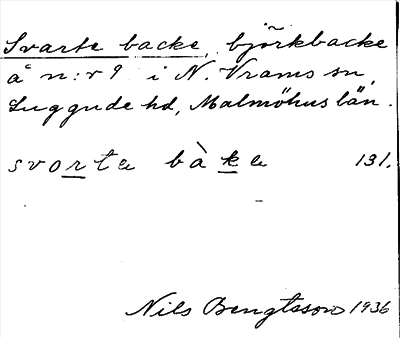 Svarte backe, björkbacke
å n:r 9 i N. Vrams sn,
Luggude hd, Malmöhus län.
svorta bàka 131.
Nils Bengtsson 1936